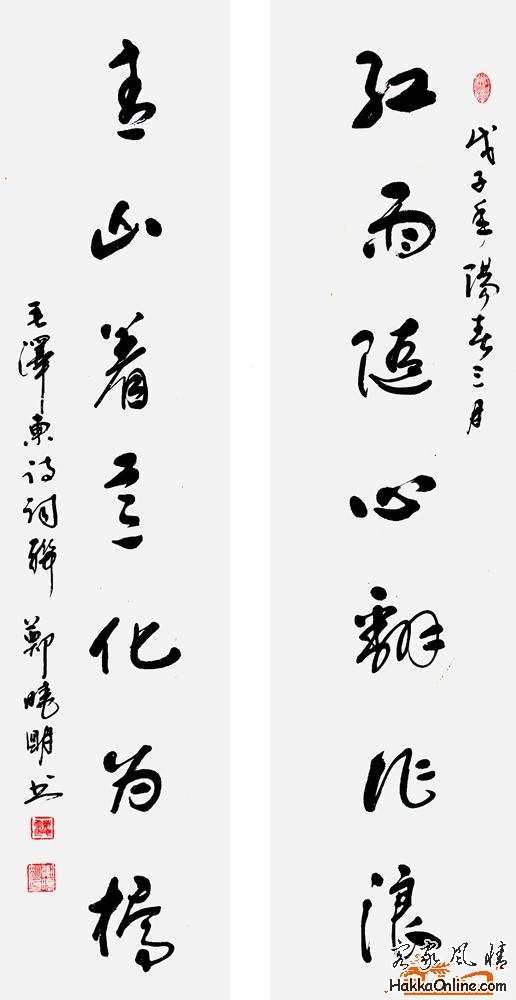 戊子年陽春三月
红雨随心翻作浪
青山着意化为橋
毛澤東诗词聯 鄭曉明书
客家风情
HakkaOnline.com